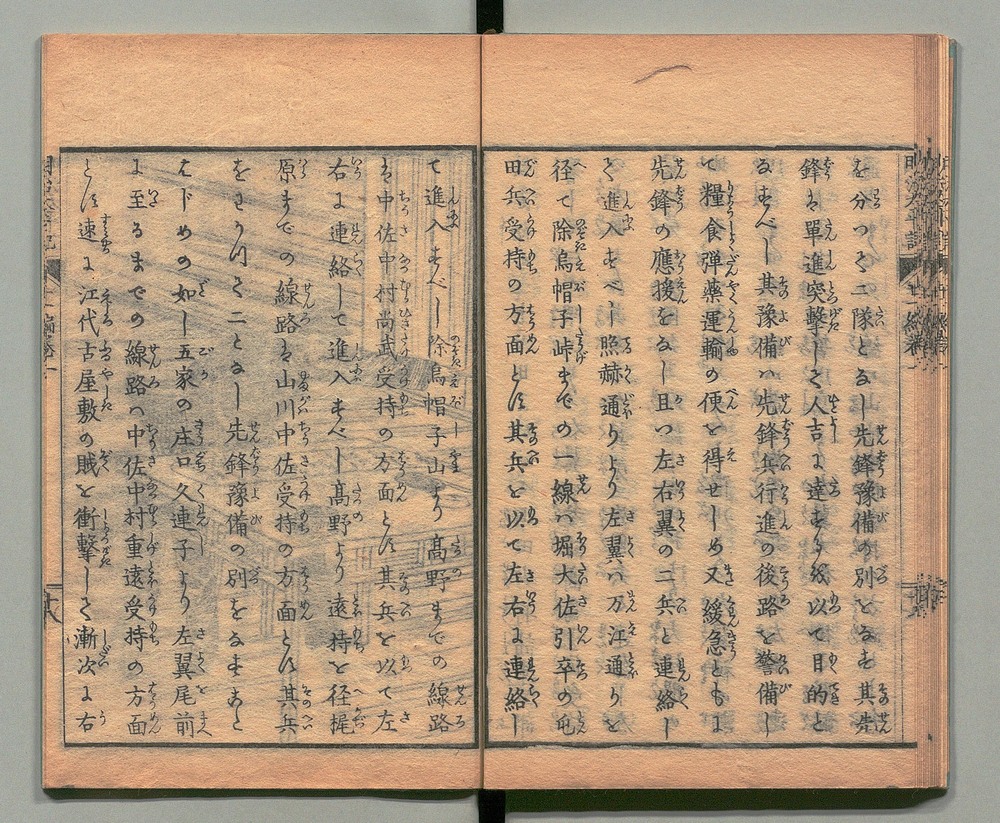 を分つて二隊となし先鋒豫備の別となす其先
鋒は單進突擊して人吉に達するを以て目的と
なすべし其豫備ハ先鋒兵行進の後路を警備し
て糧食弾藥運輸の便を得せしめ又緩急ともに
先鋒の應援をなし且つ左右翼の二兵と連絡し
て進入すべし照赫通りより左翼ハ万江通りを
径て除烏帽子峠までの一線ハ堀大佐引卒の屯
田兵受持の方面とす其兵を以て左右に連絡し
て進入すべし除烏帽子山より髙野までの線路
は中佐中村尚武受持の方面とす其兵を以て左
右に連絡して進入すべし髙野より遠持を径梶
原までの線路は山川中佐受持の方面とす其兵
をわかつて二となし先鋒豫備の別をなすこと
はじめの如し五家の庄口久連子より左翼尾前
に至るまでの線路ハ中佐中村重遠受持の方面
とす速に江代古屋敷の賊を衝擊して漸次に右